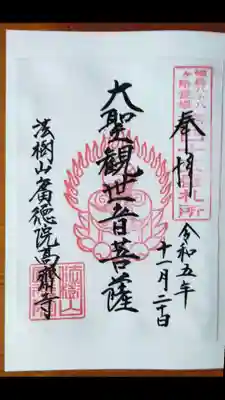 奉拝
令和五年
十一月二十日
大聖観世音菩薩
法樹山廣徳院高齋寺